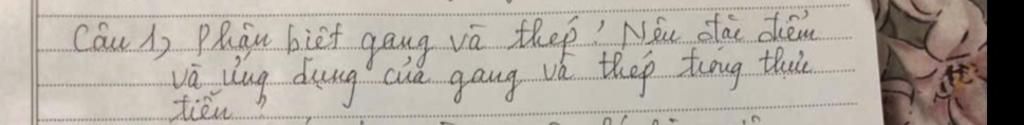 Câu 1, Phân biệt gang và thép? Nêu đặc điểm
và ứng dụng của gang và thép trong thực
tiễn?